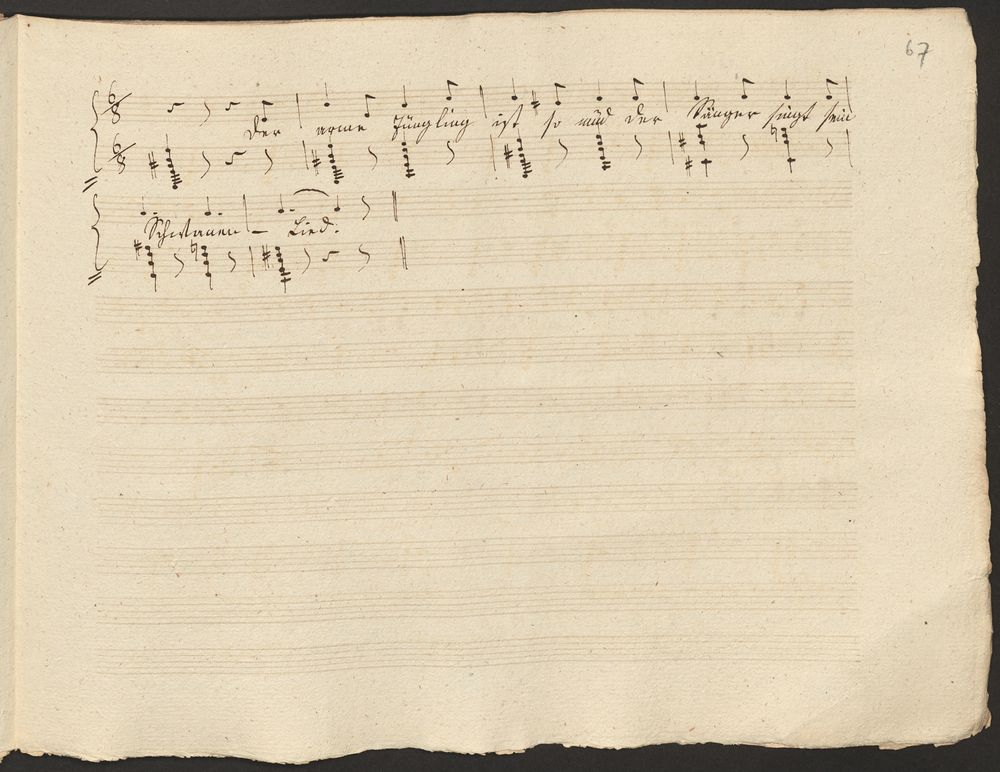 67
6/8
Der arme Jüngling ist so müd der Sänger singt sein
6/8
Schwanen - Lied.